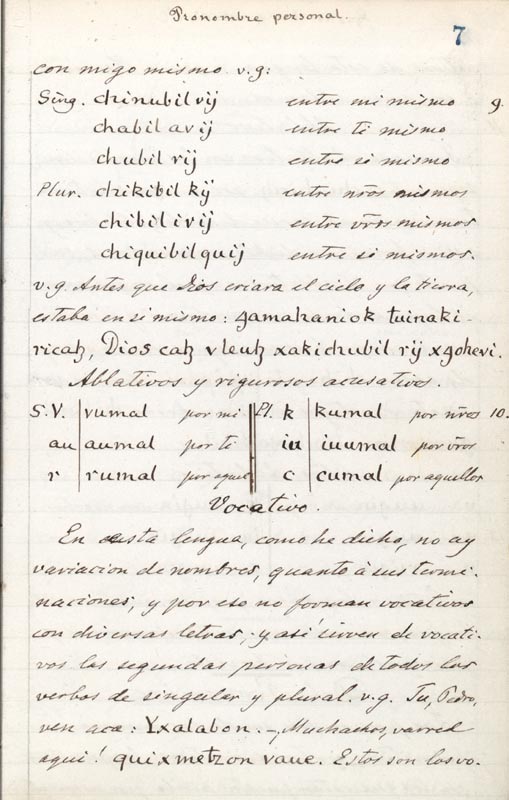 Pronombre personal.
7
con migo mismo v.g:
Sing. chinubil vij entre mi mismo 9.
chabil avij entre ti mismo
chubil rij entre si mismo
Plur. chikibil kij entre nr̃os mismos
chibil ivij entre vr̃os mismos
chiquibil quij entre si mismos.
v.g. Antes que Dios criara el cielo y la tierra,
estaba en si mismo: gamahaniok tuinaki-
ricah, Dios cah vleuh xakichubil rij xgohevi.
Ablativos y rigurosos acusativos.
S. V. vumal por mi Pl. k kumal por nr̃os 10.
au aumal por ti iu iuumal por vr̃os
r rumal por aquel c cumal por aquellos
Vocativo.
En esta lengua, como he dicho, no ay
variacion de nombres, quanto à sus termi-
naciones, y por eso no forman vocativos
con diversas letras, y asi sirven de vocati-
vos las segundas personas de todos los
verbos de singular y plural. v.g. Tu, Pedro,
ven aca: Yxalabon. –, Muchachos, varred
aqui! quixmetzon vaue. Estos son los vo-